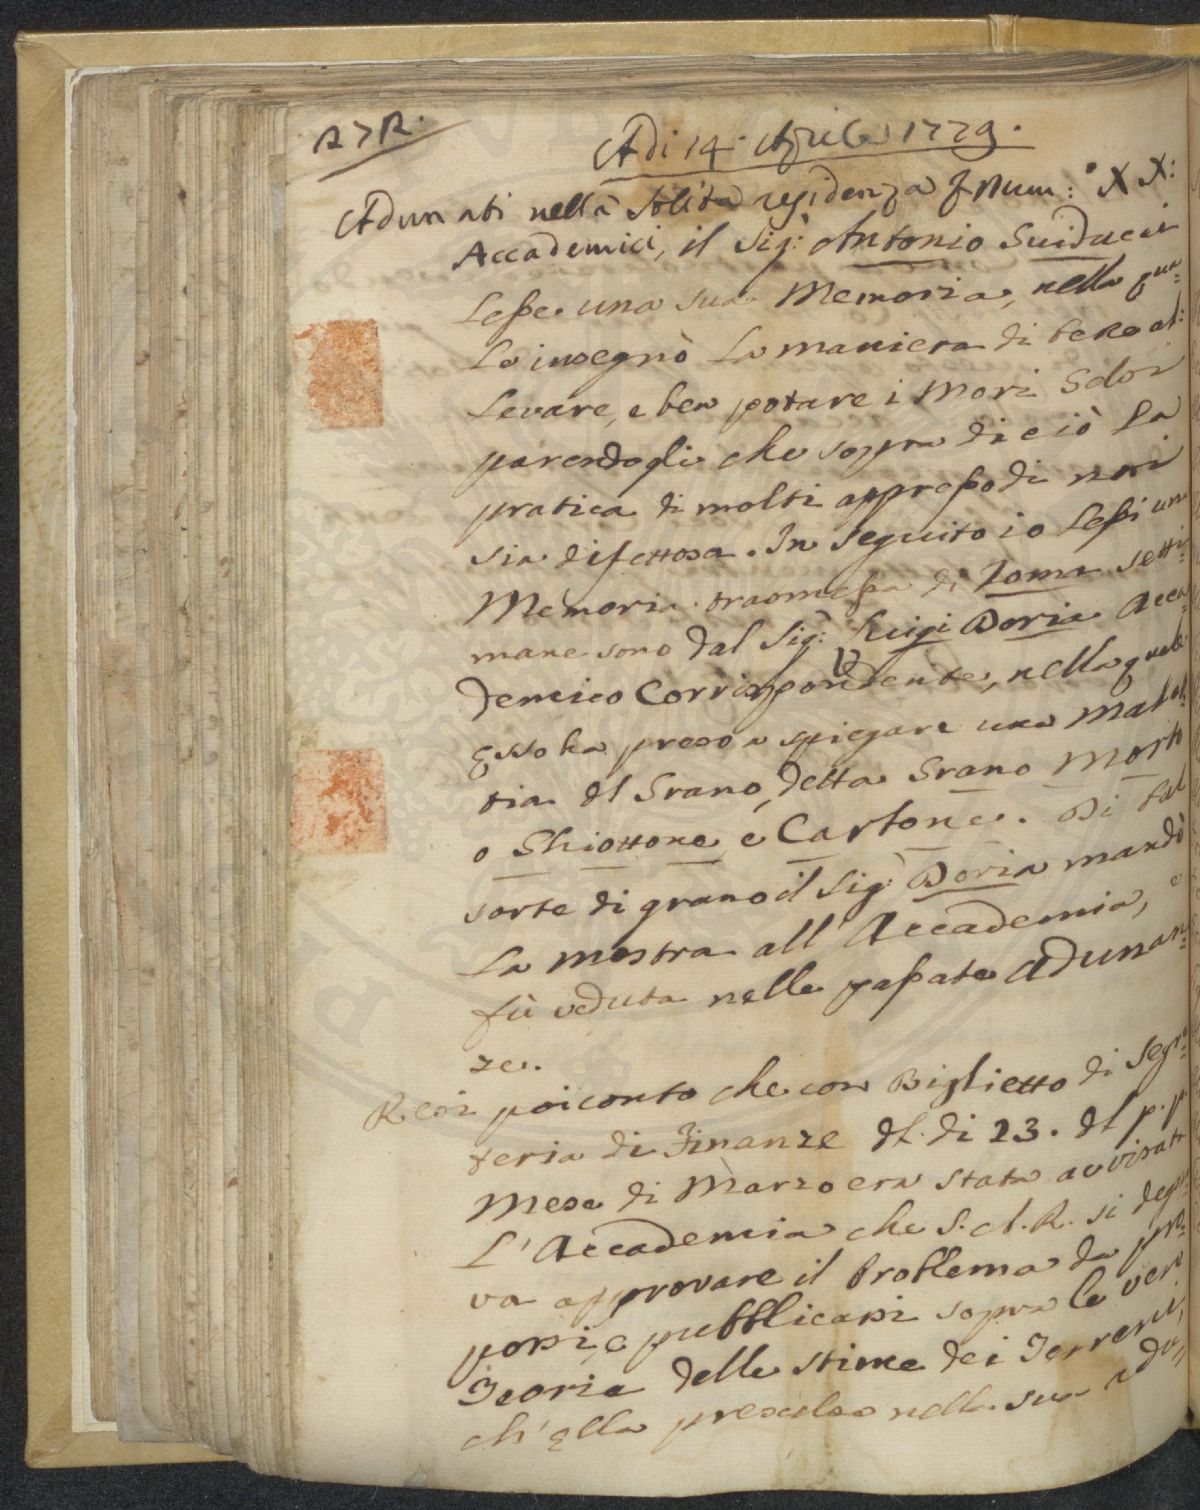 Adi 14. Aprile 1779.
Adunati nella Solita residenza in Num: XX:
Accademici, il Sig: Antonio Guiducci
Lesse una sua Memoria, nella qua=
le insegnò la maniera di bene al=
levare, e ben potare i Mori Gelsi
parendogli che sopra di ciò la
pratica di molti appresso di noi
sia difettosa. In seguito io Lessi una
Memoria trasmessa di Roma setti=
mane sono dal Sig: Luigi Doria Acca=
demico Corrispondente, nella quale
Esso ha preso a spiegare una malat=
tia del Grano, detta Grano Morto
o Ghiottone, e Cartone. Di tal
sorte di grano il Sig: Doria mandò
la mostra all'Accademia, e
fù veduta nelle passate Adunan=
ze.
Resi poi conto che con Biglietto di Segre=
teria di Finanze de' di 23. del p.p.
Mese di Marzo era stata avvisata
L'Accademia che S. A. R. si degna=
va approvare il Problema da pro=
porsi, e pubblicarsi sopra la vera
Teoria delle stime dei Terreni,
ch'Ella prescelse nella sua adu=